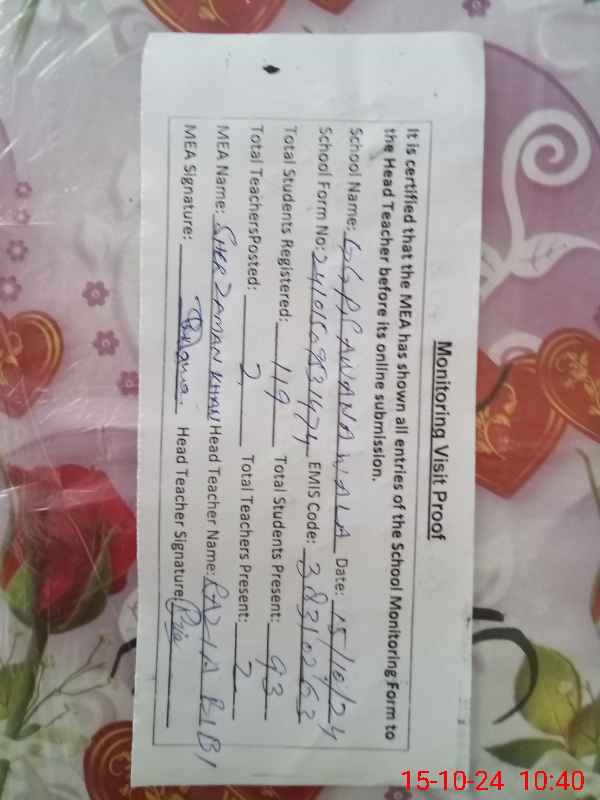 Monitoring Visit Proof
It is certified that the MEA has shown all entries of the School Monitoring Form to
the Head Teacher before its online submission.
School Name: GGPS AWANA WALA Date: 15/10/24
School Form No: EMIS Code: 38310263
Total Students Registered: 119 Total Students Present: 93
Total TeachersPosted: 2 Total Teachers Present: 2
MEA Name: SHER ZAMAN KHAN Head Teacher Name: RAZIA BIBI
MEA Signature: Head Teacher Signature
15-10-24 10:40